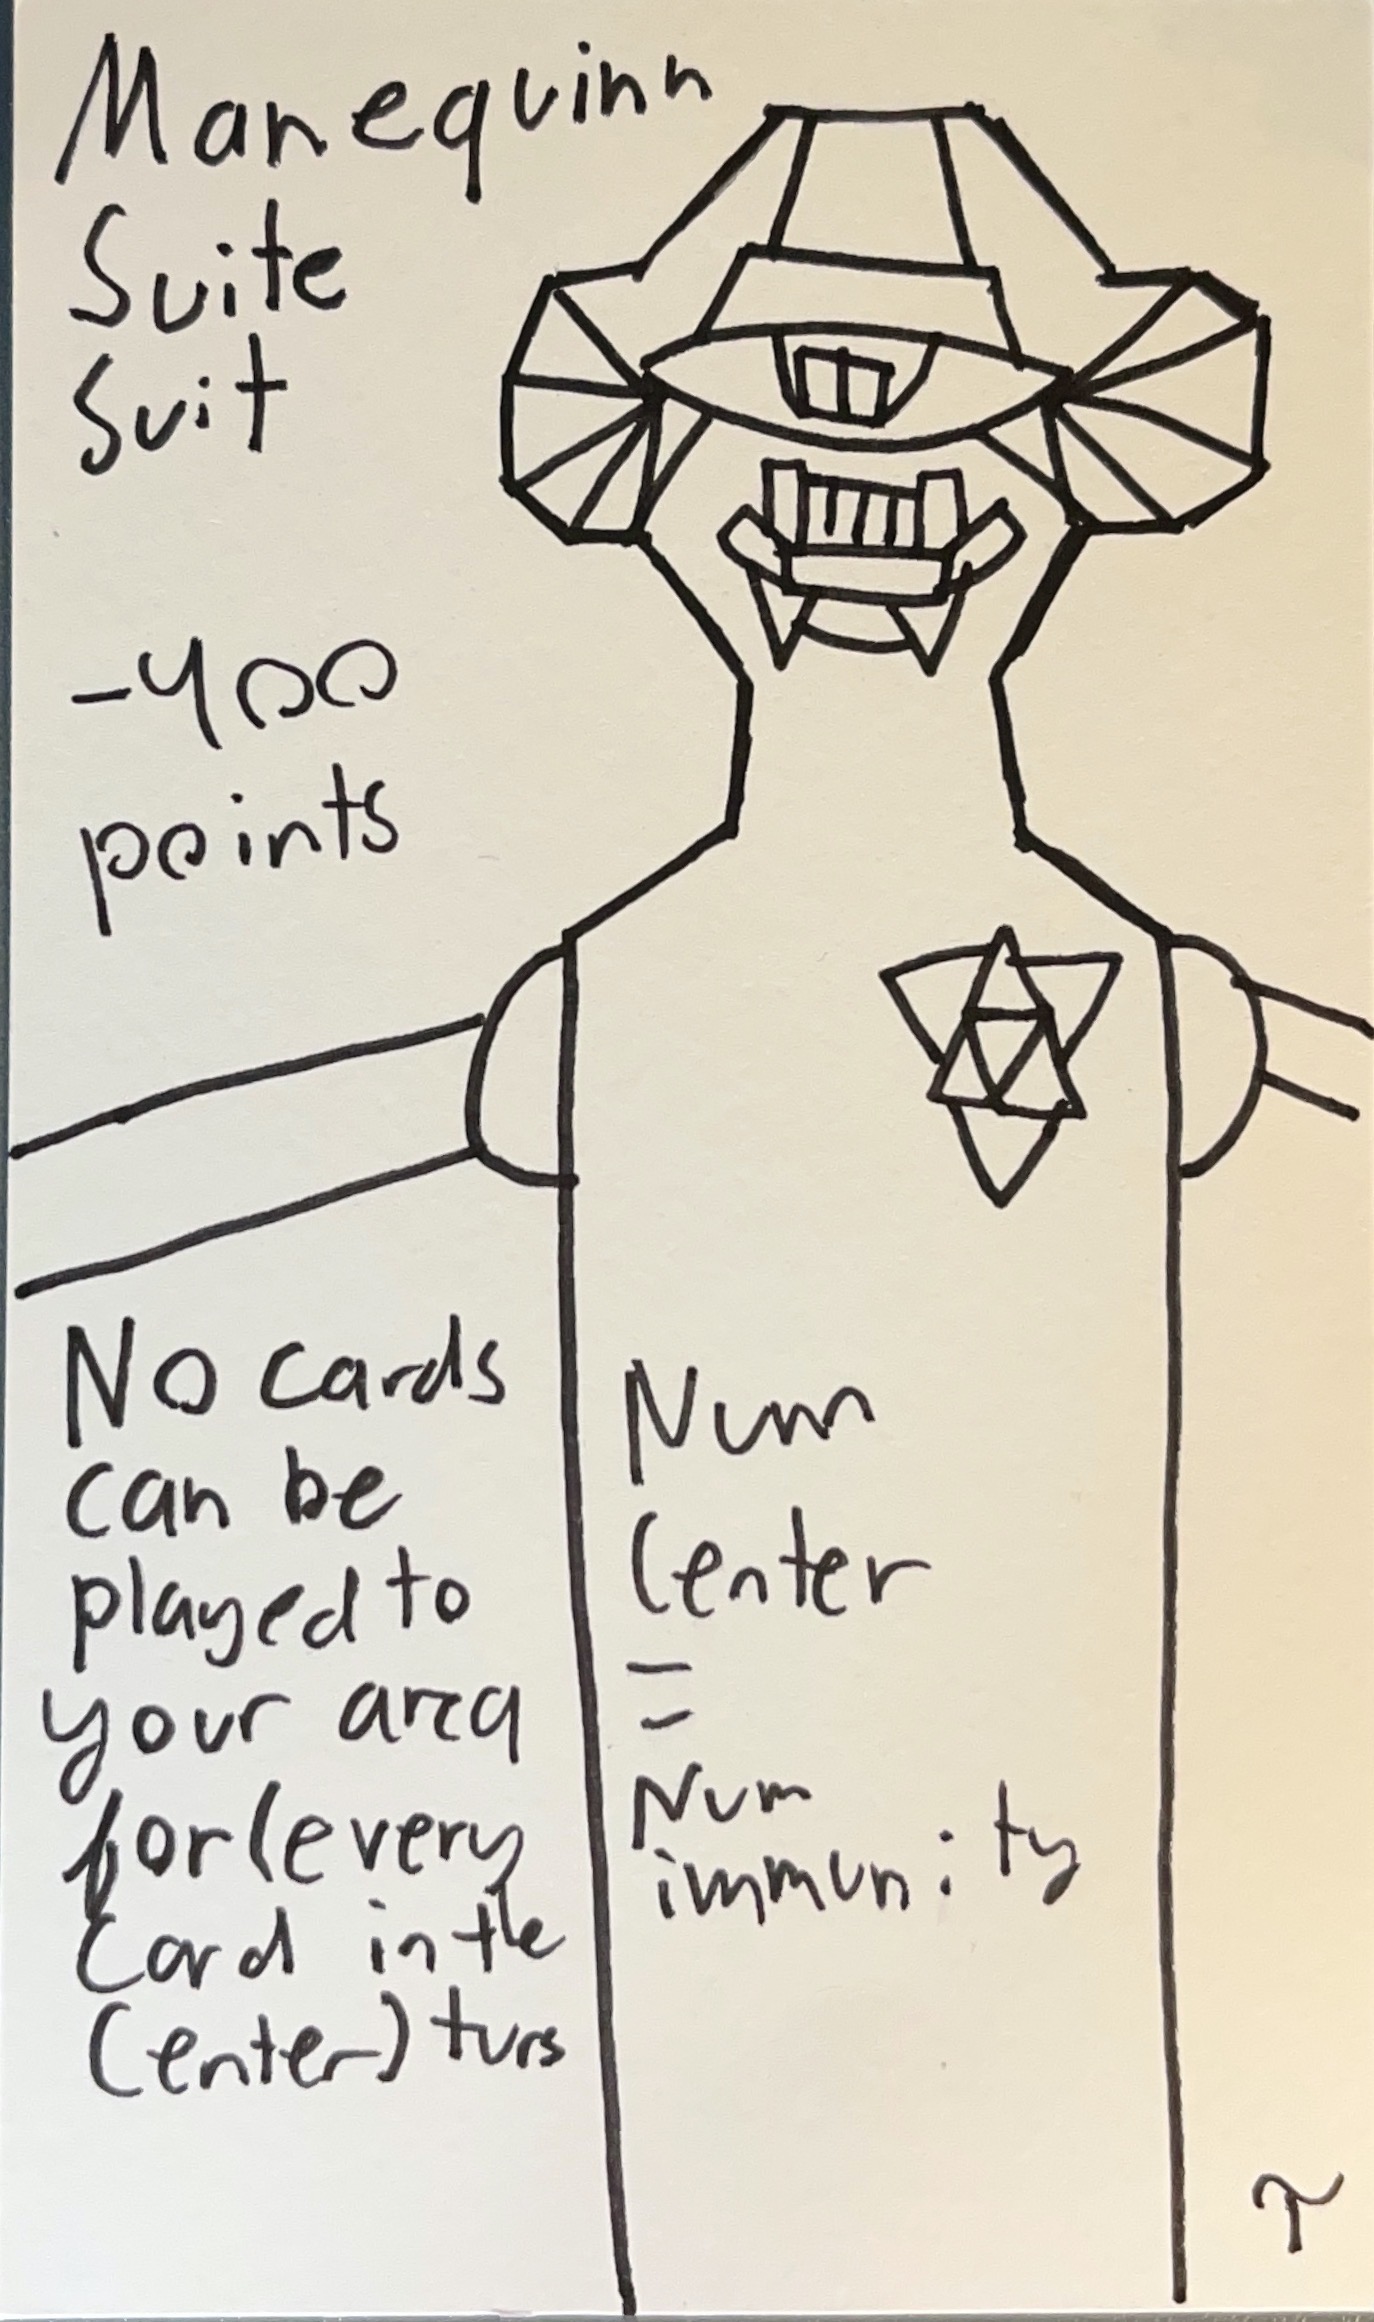 Manequinn
Suite
Suit
-400
points
No cards
can be
played to
your area
for (every
Card in the
Center) turs
Num
Center
=
Num
immunity
τ